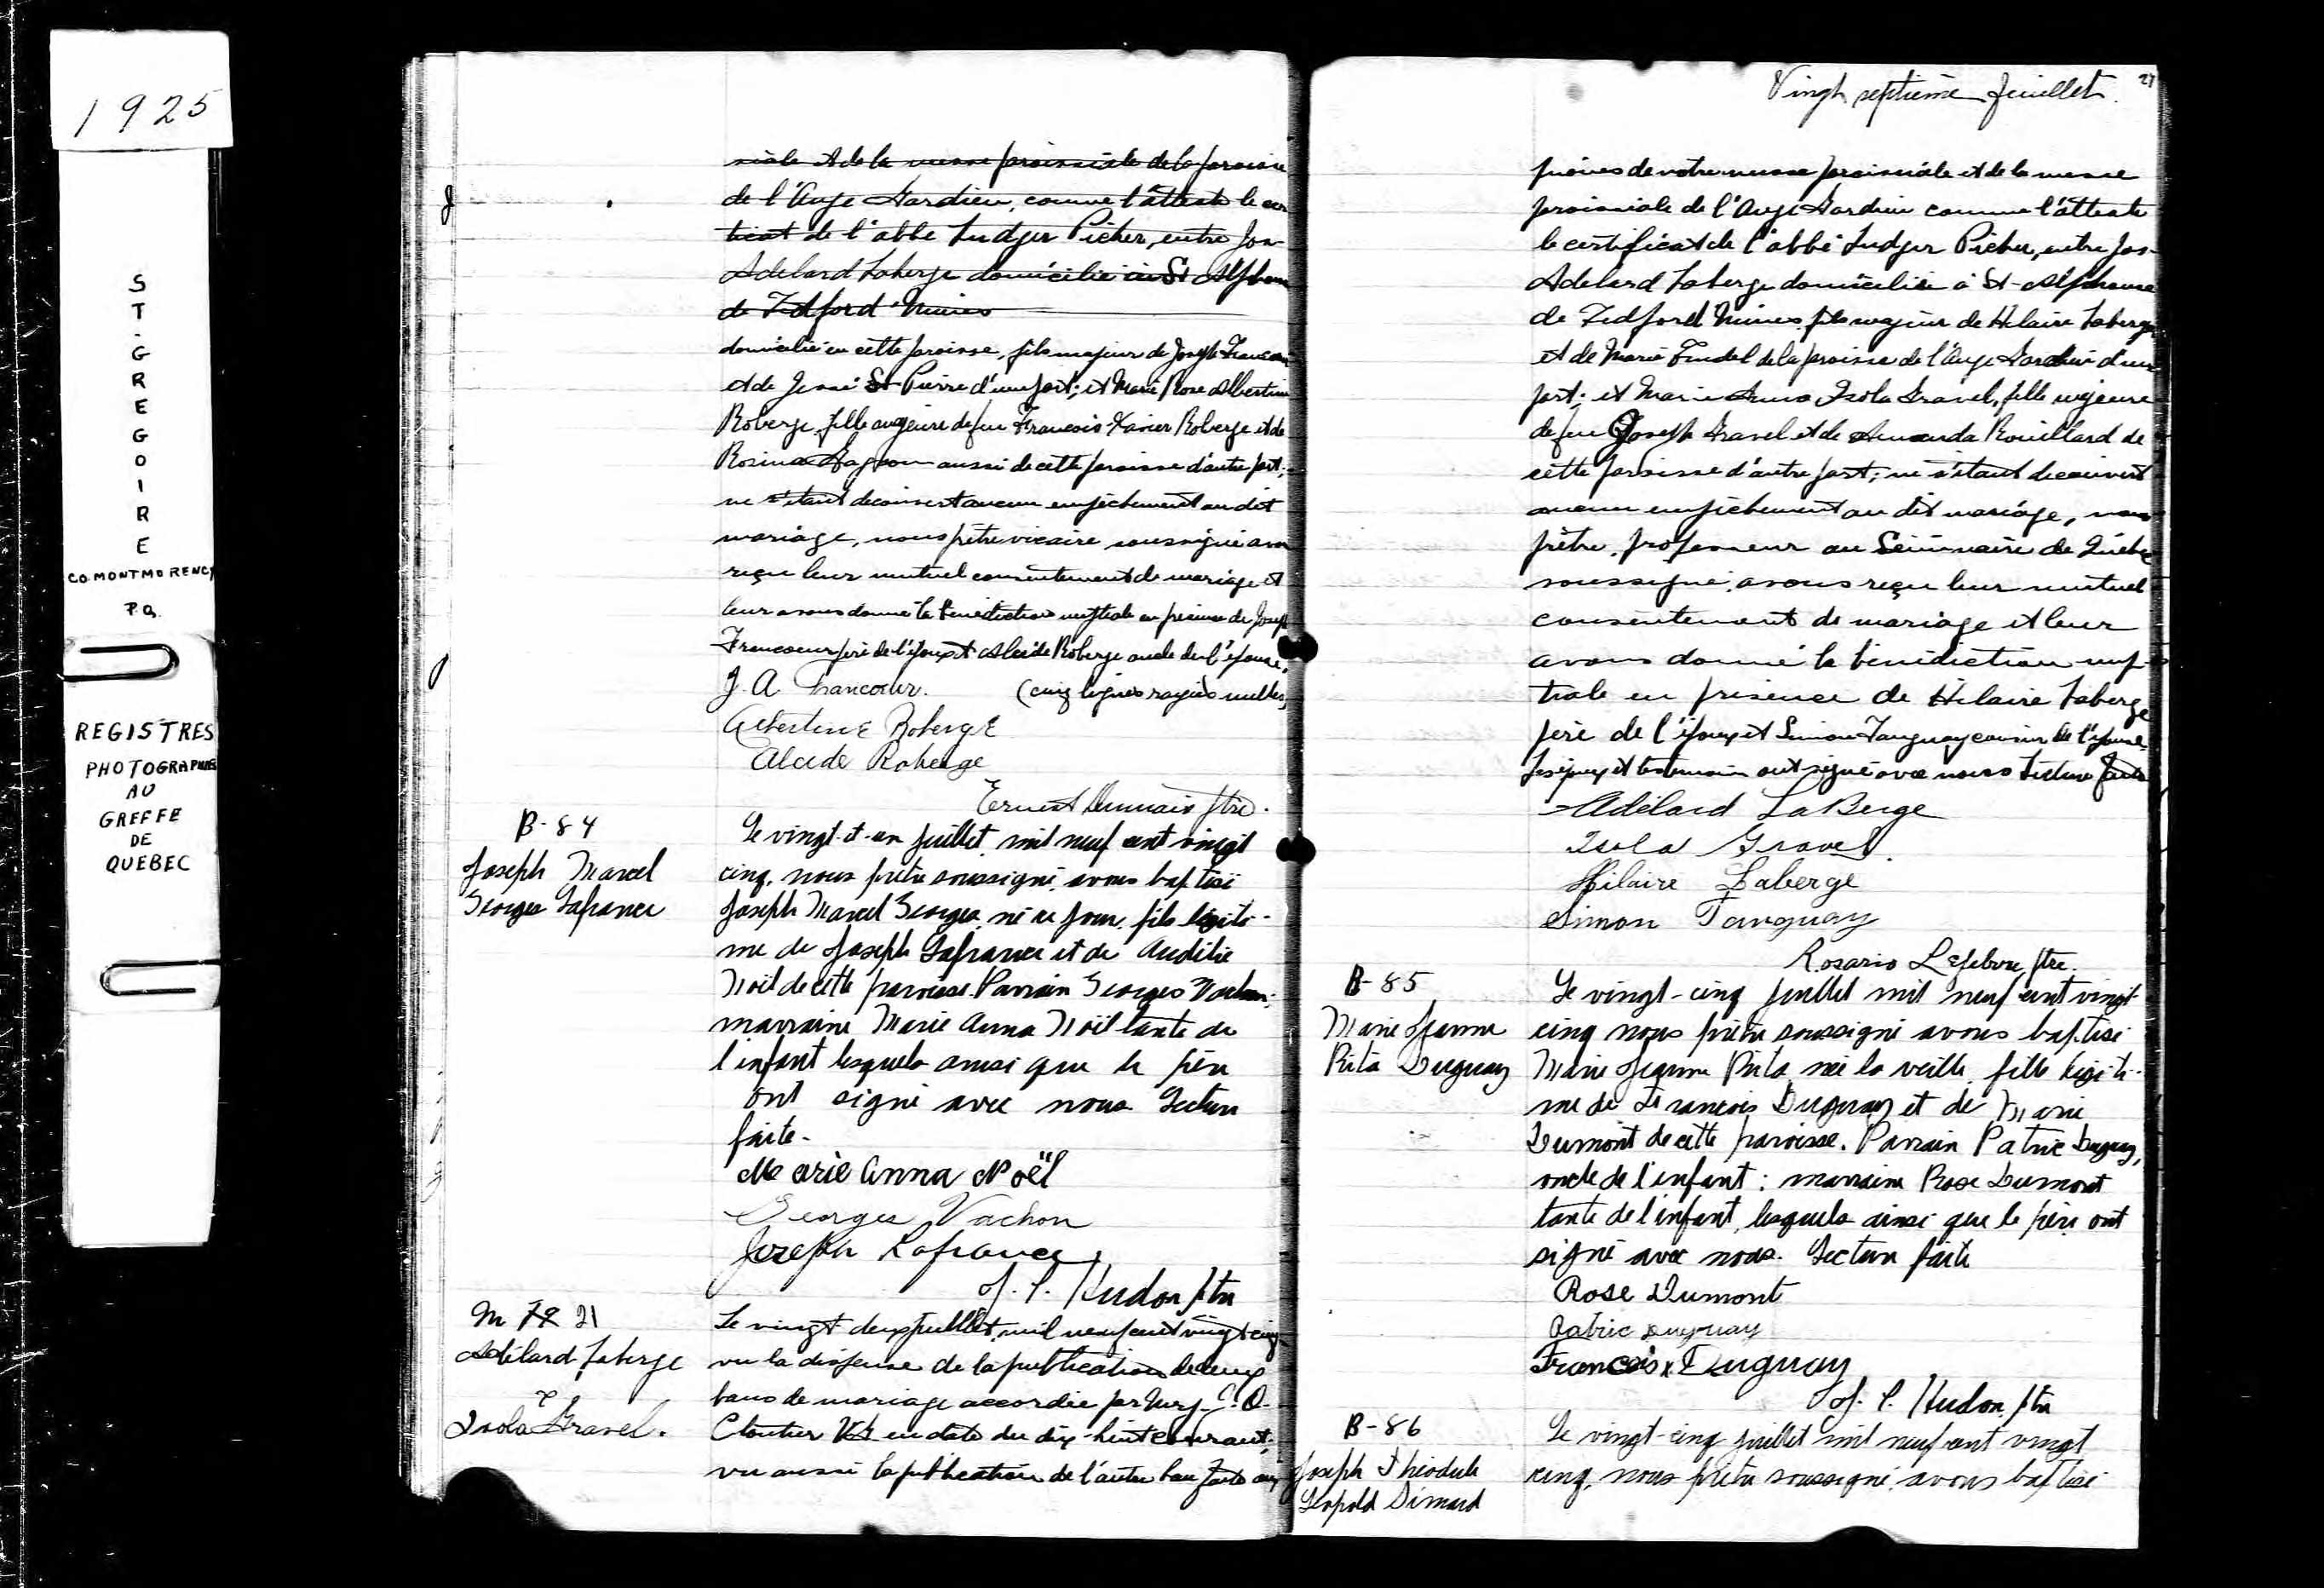 1925
ST-GREGOIRE
CO. MONTMORENCY
P.Q.
REGISTRES
PHOTOGRAPHIES
AU
GREFFE
DE
QUEBEC
siale et de la messe paroissiale de la paroisse
de l'Ange Gardien, comme l'atteste le cer
ticat de l'abbé Ludger Picher, entre Jos-
Adelard Laberge domicilié à St Alphonse
de Tedford Mines
domicilié en cette paroisse, fils majeur de Joseph Francoeur
et de Jessé St Pierre d'une part; et Marie Rose Albertine
Roberge, fille majeure de feu François-Xavier Roberge et de
Rosina Gagnon aussi de cette paroisse d'autre part;
ne s'étant découvert aucun empêchement au dit
mariage, nous prêtre vicaire soussigné avons
reçu leur mutuel consentement de mariage et
leur avons donné la bénédiction nuptiale en présence de Joseph
Francoeur père de l'époux et Alcide Roberge oncle de l'épouse.
J. A. Francoeur. (cinq lignes rayées nulles)
Albertine Roberge
Alcide Roberge
Ernest Dumais ptre.
B-84
Joseph Marcel
Georges Lafrance
Le vingt-et-un juillet mil neuf cent vingt
cinq, nous prêtre soussigné, avons baptisé
Joseph Marcel Georges, né ce jour, fils légiti-
me de Joseph Lafrance et de Audélie
Noël de cette paroisse. Parrain Georges Vachon;
marraine Marie Anna Noël tante de
l'enfant lesquels ainsi que le père
ont signé avec nous. Lecture
faite.
Marie Anna Noël
Georges Vachon
Joseph Lafrance
J. P. Hudon ptre
M 78 21
Adélard Laberge
&
Isola Gravel.
Le vingt deux juillet, mil neuf cent vingt cinq
vu la dispense de la publication de deux
bans de mariage accordée par Mgr C. O.
Cloutier VG en date du dix-huit courant;
vu aussi la publication de l'autre ban faite aux
Vingt septième feuillet. 27
prônes de notre messe paroissiale et de la messe
paroissiale de l'Ange Gardien comme l'atteste
le certificat de l'abbé Ludger Picher, entre Jos-
Adelard Laberge domicilié à St-Alphonse
de Tedford Mines, fils majeur de Hilaire Laberge
et de Marie Trudel de la paroisse de l'Ange Gardien d'une
part; et Marie Anna Isola Gravel, fille majeure
de feu Joseph Gravel et de Amanda Rouillard de
cette paroisse d'autre part; ne s'étant découvert
aucun empêchement au dit mariage, nous
prêtre, professeur au Séminaire de Québec
soussigné, avons reçu leur mutuel
consentement de mariage et leur
avons donné la bénédiction nup-
tiale en présence de Hilaire Laberge
père de l'époux et Simon Tanguay cousin de l'épouse.
Les époux et les témoins ont signé avec nous lecture faite
Adélard LaBerge
Isola Gravel.
Hilaire Laberge
Simon Tanguay
Rosario Lefebvre, ptre.
B-85
Marie Jeanne
Rita Duguay
Le vingt-cinq juillet mil neuf cent vingt-
cinq nous prêtre soussigné avons baptisé
Marie Jeanne Rita, née la veille, fille légiti-
me de François Duguay et de Marie
Dumont de cette paroisse. Parrain Patric Duguay,
oncle de l'enfant; marraine Rose Dumont
tante de l'enfant, lesquels ainsi que le père ont
signé avec nous. Lecture faite
Rose Dumont
Patric Duguay
Francois x Duguay
J. P. Hudon, ptre
B-86
Joseph Théodule
Léopold Simard
Le vingt-cinq juillet mil neuf cent vingt
cinq, nous prêtre soussigné, avons baptisé